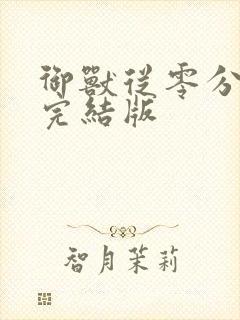 御獸從零分
完結版
智月茉莉